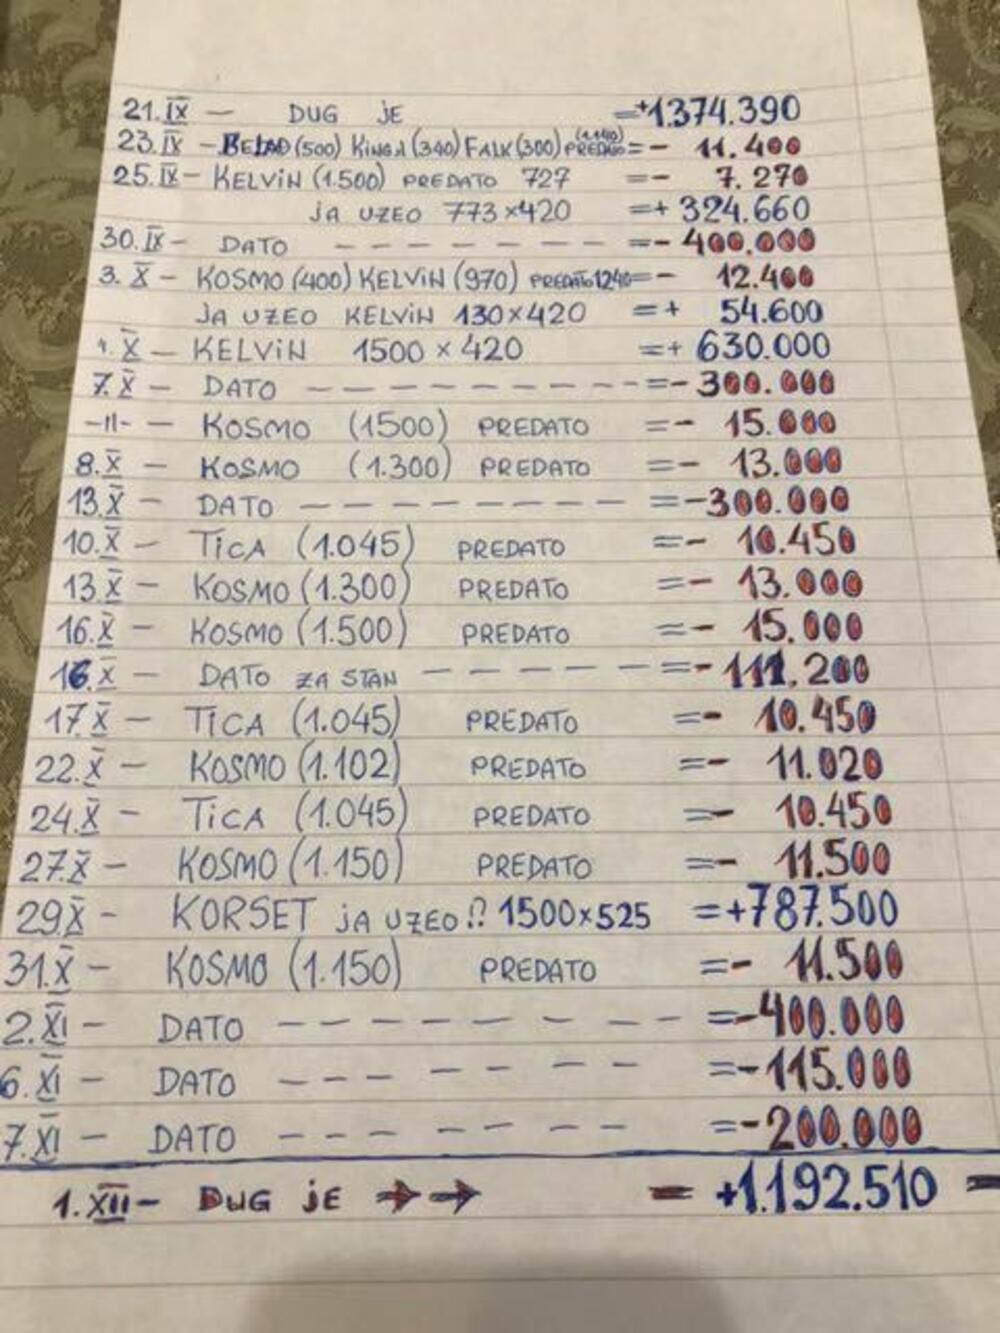 21.IX — DUG JE =+1.374.390
23.IX — BELAD(500) KINGA(340) FALK(300) (1.140) PREDATO = - 11.400
25.IX — KELVIN (1.500) PREDATO 727 = - 7.270
JA UZEO 773×420 =+ 324.660
30.IX — DATO — — — — — — — — = - 400.000
3. X — KOSMO (400) KELVIN (970) PREDATO 1240 = - 12.400
JA UZEO KELVIN 130×420 = + 54.600
X — KELVIN 1500 × 420 =+ 630.000
7. X — DATO — — — — — — — — — = - 300.000
-11- — KOSMO (1500) PREDATO = - 15.000
8. X — KOSMO (1.300) PREDATO = - 13.000
13. X — DATO — — — — — — — — = - 300.000
10. X — TICA (1.045) PREDATO = - 10.450
13. X — KOSMO (1.300) PREDATO = - 13.000
16. X — KOSMO (1.500) PREDATO = - 15.000
16. X — DATO ZA STAN — — — — — — = - 111.200
17. X — TICA (1.045) PREDATO = - 10.450
22. X — KOSMO (1.102) PREDATO = - 11.020
24. X — TICA (1.045) PREDATO = - 10.450
27. X — KOSMO (1.150) PREDATO = - 11.500
29. X — KORSET JA UZEO !? 1500×525 =+787.500
31. X — KOSMO (1.150) PREDATO = - 11.500
2. XI — DATO — — — — — — — — = - 400.000
6. XI — DATO — — — — — — — = - 115.000
7. XI — DATO — — — — — — — = - 200.000
1. XII — DUG JE →→ = +1.192.510 =